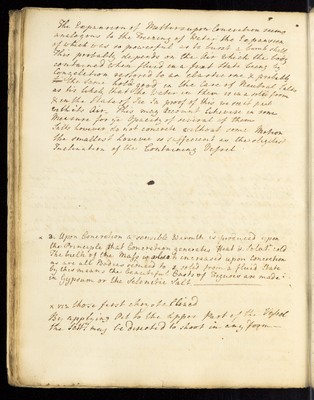 The Expansion of Matter upon Concretion seems
analogous to the Freezing of Water the Expansion
of which was so powerful as to burst a bomb shell
This probably depends on the Air which the body
contained when fluid in a fixt State being by
Congelation restored to an elastic one & probably
The same holds good in the Case of Neutral Salts
as its likely that the Water in them is in a solid form
& in the State of Ice In proof of this we must put
Elastic Air. This may account likewise in some
Measure for ye Opacity of several of them
Salts however do not concrete without some Motion
the smallest however is sufficient as the slightest
Inclination of the Containing Vessel
2. Upon Concretion a sensible Warmth is produced upon
the Principle that Concretion generates Heat & Solutn. cold
The bulk of the Mass is also increased upon Concretion
as are all Bodies reduced to a solid from a fluid State
by this means the beautiful Casts of Figures are made
in Gypsum or the Selenetic Salt
x viz those first chrystallized
By applying Oil to the upper Part of the Vessel
the Salts may be directed to shoot in any form